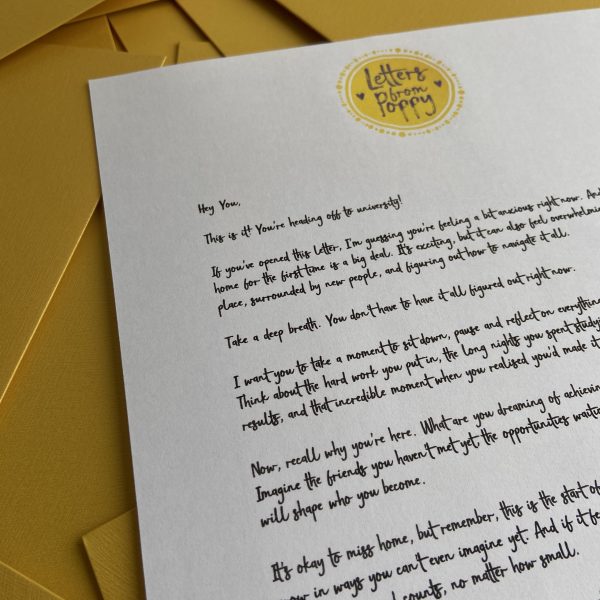 Letters
from
Poppy
Hey You,
This is it! You're heading off to university!
If you've opened this letter, I'm guessing you're feeling a bit anxious right now. And
home for the first time is a big deal. It's exciting, but it can also feel overwhelmin
place, surrounded by new people, and figuring out how to navigate it all.
Take a deep breath. You don't have to have it all figured out right now.
I want you to take a moment to sit down, pause and reflect on everything
Think about the hard work you put in, the long nights you spent studyi
results, and that incredible moment when you realised you'd made it
Now, recall why you're here. What are you dreaming of achievin
Imagine the friends you haven't met yet the opportunities waitin
will shape who you become.
It's okay to miss home, but remember, this is the start of
in ways you can't even imagine yet. And if it fe
counts, no matter how small.